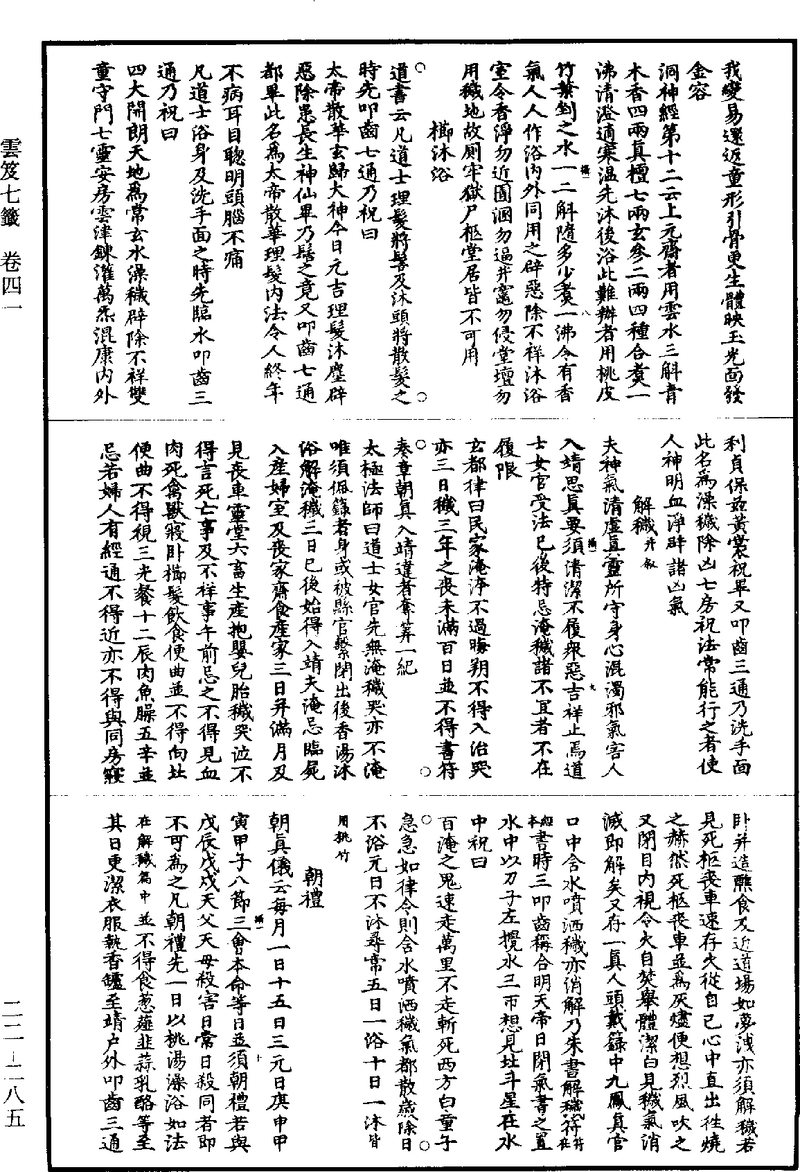 雲笈七籤　卷四一
二二—二八五
我變易還返童形引骨更生體映玉光面發
金容
洞神經第十二云上元齋者用雲水三斛青
木香四兩真檀七兩玄參二兩四種合煑一
沸清澄適寒温先沐後浴此難辦者用桃皮
竹葉剉之水一二斛隨多少煑一沸令有香
氣人人作浴内外同用之辟惡除不祥沐浴
室令香淨勿近圊溷勿逼井竈勿侵堂壇勿
用穢地故厠牢獄尸柩堂居皆不可用
櫛沐浴
道書云凡道士理髮將髻及沐頭將散髮之
時先叩齒七通乃祝曰
太帝散華玄歸大神今日元吉理髮沐塵辟
惡除患長生神仙畢乃髻之竟又叩齒七通
都畢此名爲太帝散華理髮内法令人終年
不病耳目聰明頭腦不痛
凡道士浴身及洗手面之時先臨水叩齒三
通乃祝曰
四大開朗天地爲常玄水澡穢辟除不祥雙
童守門七靈安房雲津鍊灌萬炁混康内外
利貞保兹黄裳祝畢又叩齒三通乃洗手面
此名爲澡穢除凶七房祝法常能行之者使
人神明血淨辟諸凶氣
解穢并叙
夫神氣清虛真靈所守身心混濁邪氣害人
入靖思真要須清潔不履衆惡吉祥止焉道
士女官受法已後特忌淹穢諸不宜者不在
履限
玄都律曰民家淹洿不過晦朔不得入治哭
亦三日穢三年之喪未滿百日並不得書符
奏章朝真入靖違者奪筭一紀
太極法師曰道士女官先無淹穢哭亦不淹
唯須佩籙者身或被縣官繫閉出後香湯沐
浴解淹穢三日已後始得入靖夫淹忌臨屍
入産婦室及喪家齋食産家三日并滿月及
見喪車靈堂六畜生産抱嬰兒胎穢哭泣不
得言死亡事及不祥事午前忌之不得見血
肉死禽獸寢卧櫛髮飲食便曲並不得向北
便曲不得視三光餐十二辰肉魚臊五辛並
忌若婦人有經通不得近亦不得與同房寢
卧并造醮食及近道場如夢洩亦須解穢若
見死柩喪車速存火從自己心中直出往燒
之赫然死柩喪車並爲灰燼便想烈風吹之
又閉目内視令火自焚舉體潔白見穢氣消
滅即解矣又存一真人頭戴籙中九鳳真官
口中含水噴洒穢亦消解乃朱書解穢符符在
本經書時三叩齒稱合明天帝日閉氣書之置
水中以刀子左攪水三帀想見北斗星在水
中祝曰
百淹之鬼速走萬里不走斬死西方白童子
急急如律令則含水噴洒穢氣都散歲除日
不浴元日不沐尋常五日一浴十日一沐皆
用桃竹
朝禮
朝真儀云每月一日十五日三元日庚申甲
寅甲子八節三會本命等日並須朝禮若與
戊辰戊戌天父天母殺害日常日殺同者即
不可爲之凡朝禮先一日以桃湯澡浴如法
在解穢篇中並不得食葱薤韭蒜乳酪等至
其日更潔衣服執香鑪至靖户外叩齒三通